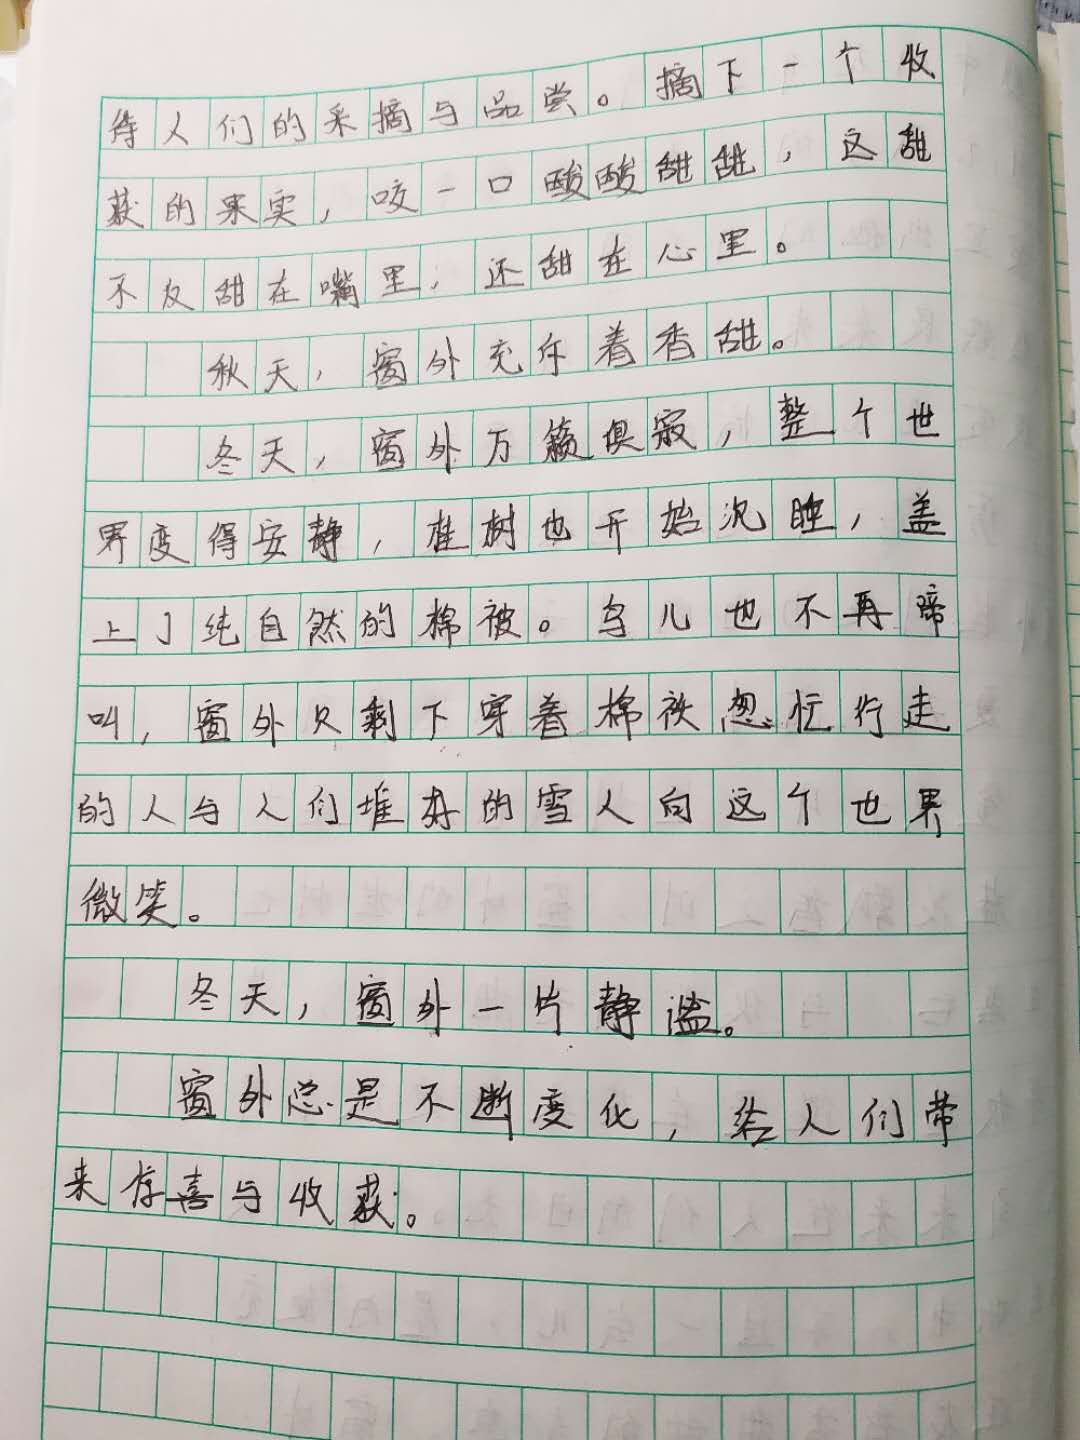 待人们的采摘与品尝。摘下一个收
获的果实，咬一口酸酸甜甜，这甜
不仅甜在嘴里，还甜在心里。
秋天，窗外充斥着香甜。
冬天，窗外万籁俱寂，整个世
界变得安静，桂树也开始沉睡，盖
上了纯自然的棉被。鸟儿也不再啼
叫，窗外只剩下穿着棉袄匆忙行走
的人与人们堆好的雪人向这个世界
微笑。
冬天，窗外一片静谧。
窗外总是不断变化，给人们带
来惊喜与收获。